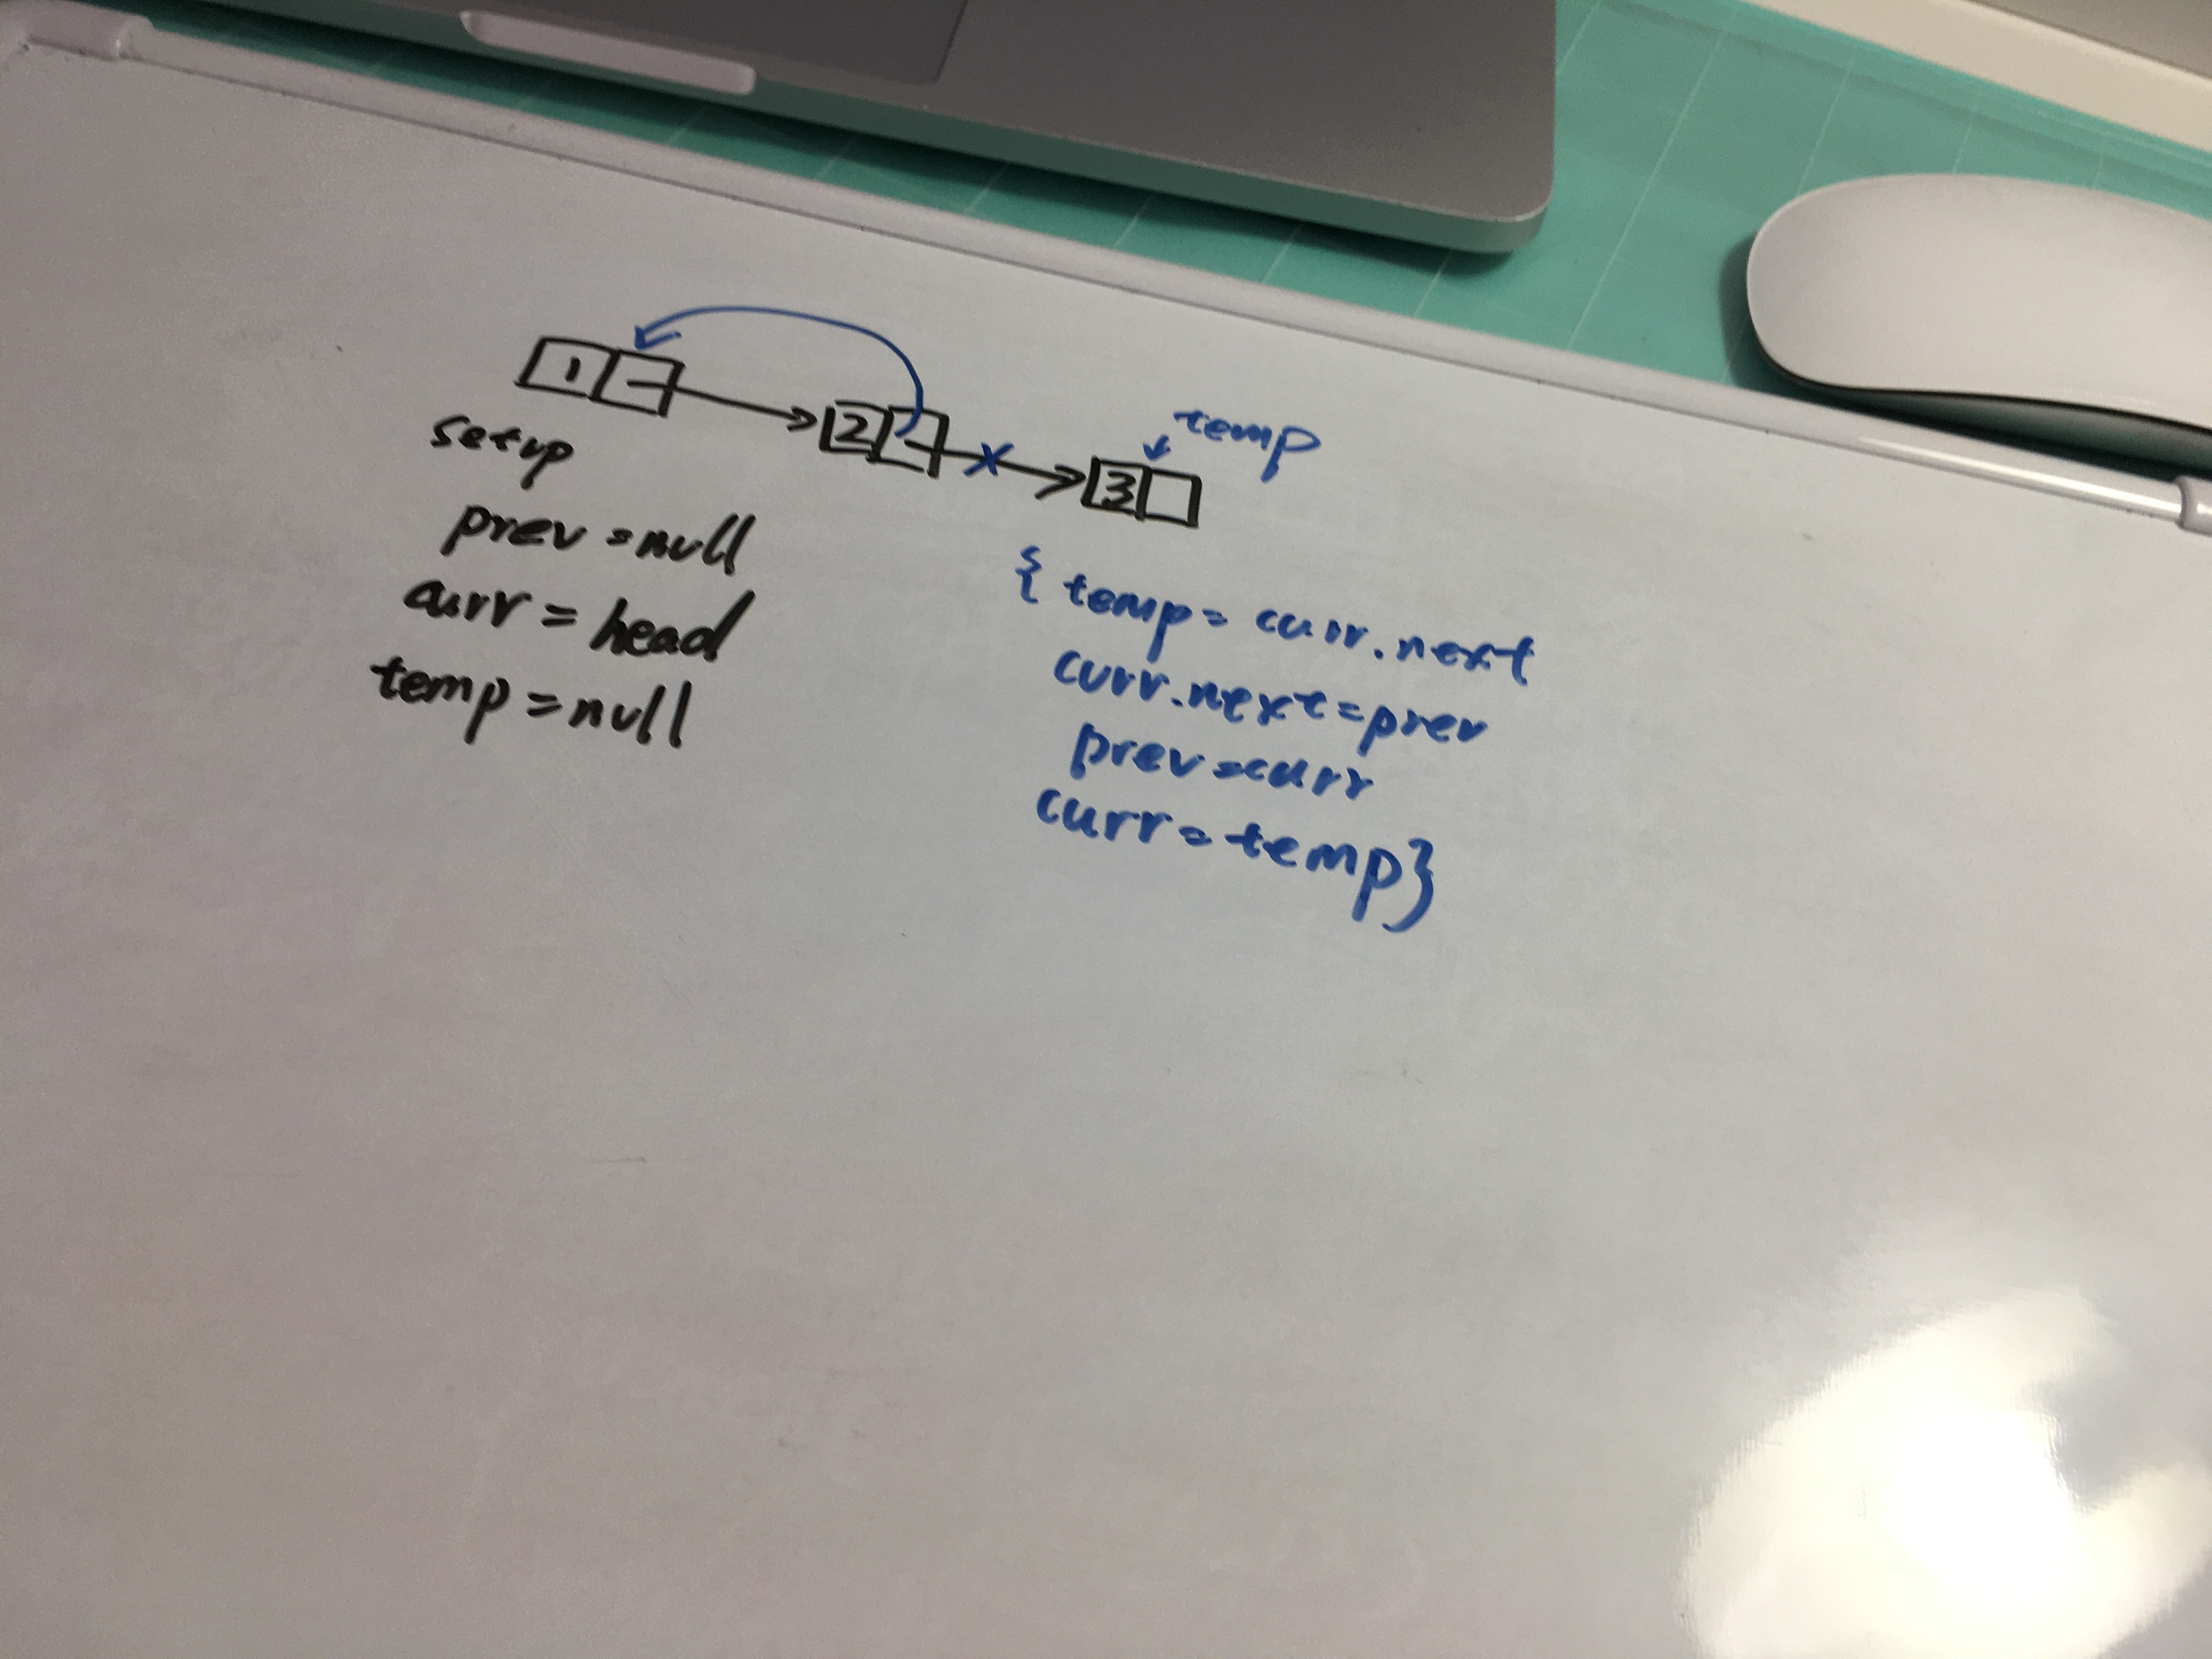 1 2 3
temp
setup
prev = null
curr = head
temp = null
{ temp = curr.next
curr.next = prev
prev = curr
curr = temp}